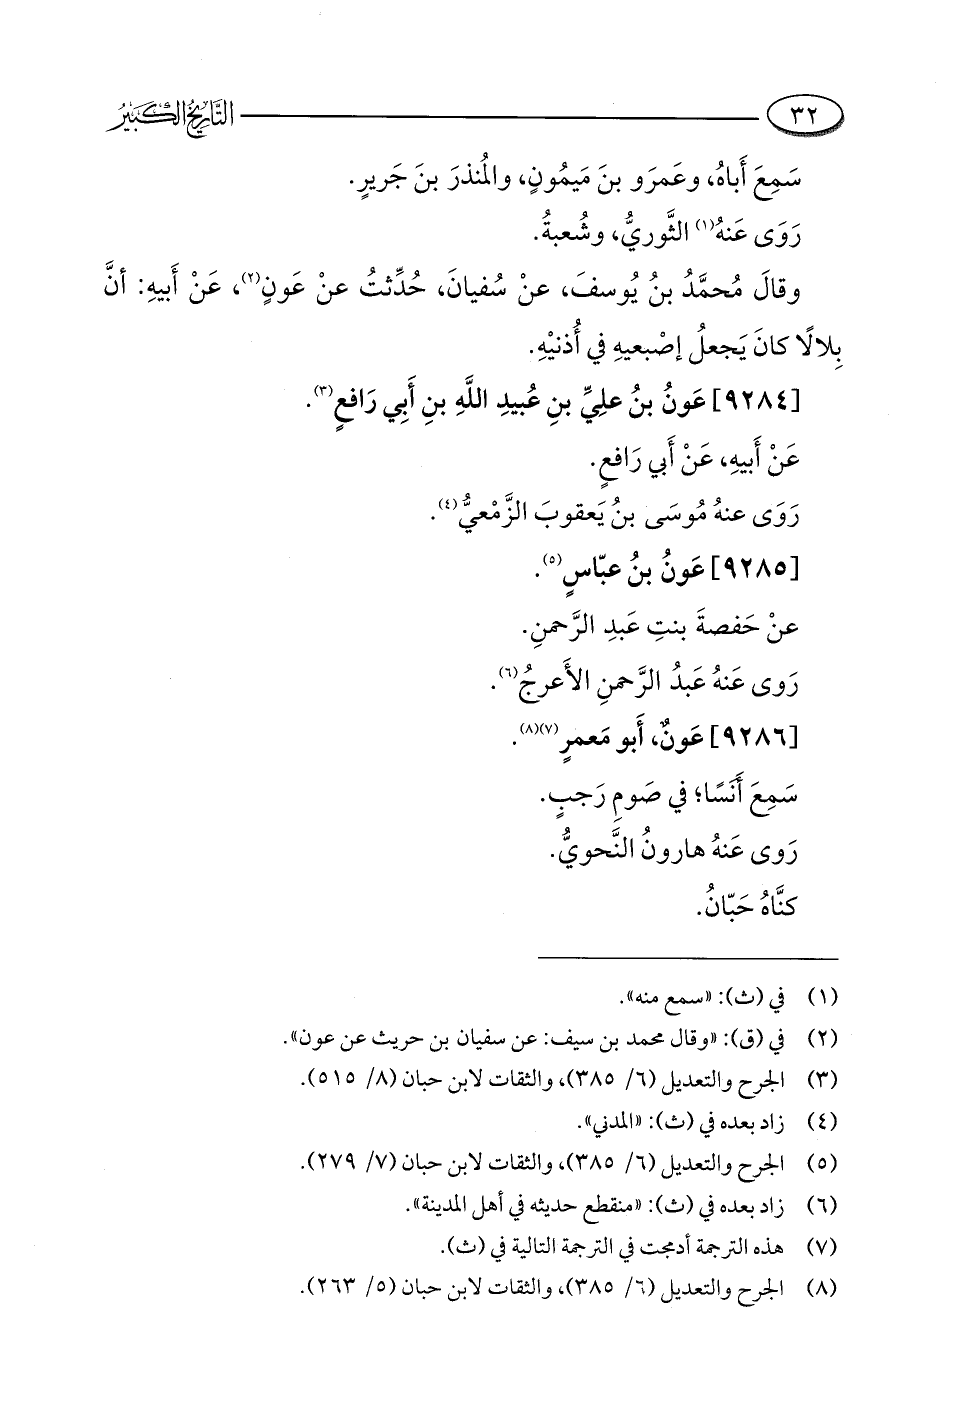 ٣٢ التاريخ الكبير
سَمِعَ أَباهُ، وعَمرَو بنَ مَيمُونٍ، والمُنذرَ بنَ جَريرٍ.
رَوَى عَنهُ(١) الثَّوريُّ، وشُعبةُ.
وقالَ مُحمَّدُ بنُ يُوسفَ، عنْ سُفيانَ، حُدِّثتُ عنْ عَونٍ(٢)، عَنْ أَبيهِ: أنَّ
بِلالًا كانَ يَجعلُ إصْبعيهِ في أُذنيْهِ.
[٩٢٨٤] عَونُ بنُ عليِّ بنِ عُبيدِ اللَّهِ بنِ أَبِي رَافعٍ(٣).
عَنْ أَبيهِ، عَنْ أَبي رَافعٍ.
رَوَى عنهُ مُوسَى بنُ يَعقوبَ الزَّمْعيُّ(٤).
[٩٢٨٥] عَونُ بنُ عبّاسٍ(٥).
عنْ حَفصةَ بنتِ عَبدِ الرَّحمنِ.
رَوى عَنهُ عَبدُ الرَّحمنِ الأَعرجُ(٦).
[٩٢٨٦] عَونٌ، أَبو مَعمرٍ(٧)(٨).
سَمِعَ أَنَسًا؛ في صَومِ رَجبٍ.
رَوى عَنهُ هارونُ النَّحويُّ.
كنَّاهُ حَبّانُ.
(١) في (ث): «سمع منه».
(٢) في (ق): «وقال محمد بن سيف: عن سفيان بن حريث عن عون».
(٣) الجرح والتعديل (٦/ ٣٨٥)، والثقات لابن حبان (٨/ ٥١٥).
(٤) زاد بعده في (ث): «المدني».
(٥) الجرح والتعديل (٦/ ٣٨٥)، والثقات لابن حبان (٧/ ٢٧٩).
(٦) زاد بعده في (ث): «منقطع حديثه في أهل المدينة».
(٧) هذه الترجمة أدمجت في الترجمة التالية في (ث).
(٨) الجرح والتعديل (٦/ ٣٨٥)، والثقات لابن حبان (٥/ ٢٦٣).